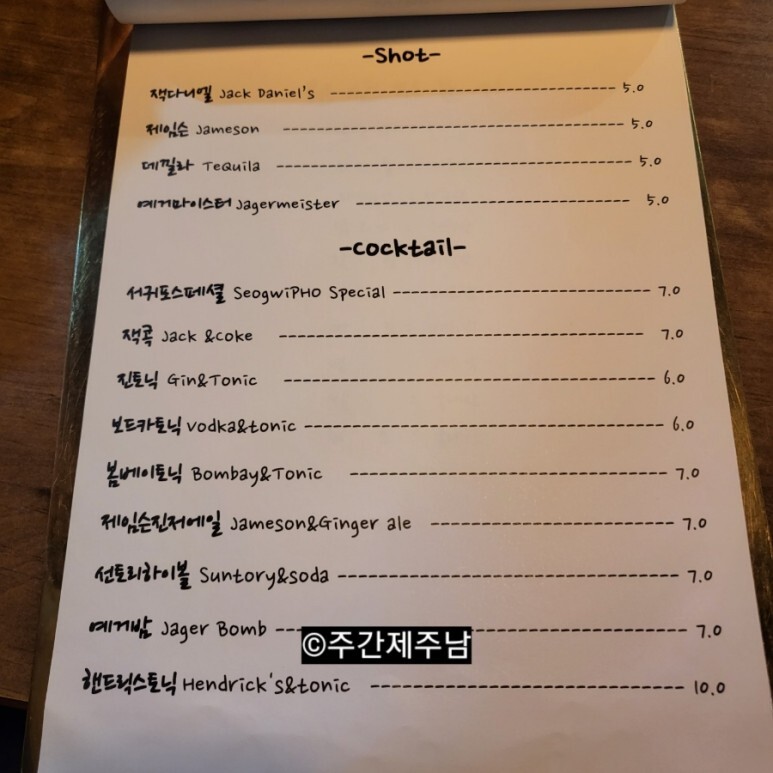 -Shot-
잭다니엘 Jack Daniel's ------------------------------------ 5.0
제임슨 Jameson ------------------------------------------- 5.0
데낄라 TeQuila -------------------------------------------- 5.0
예거마이스터 Jagermeister ---------------------------------- 5.0
-cocktail-
서귀포스페셜 SeogwiPHO Special ------------------------------- 7.0
잭콕 Jack &coke -------------------------------------------- 7.0
진토닉 Gin&Tonic ------------------------------------------- 6.0
보드카토닉 vodka&tonic -------------------------------------- 6.0
봄베이토닉 Bombay&Tonic ------------------------------------- 7.0
제임슨진저에일 Jameson&Ginger ale ----------------------------- 7.0
산토리하이볼 Suntory&soda ------------------------------------ 7.0
예거밤 Jager Bomb ------------------------------------------ 7.0
©주간제주남
핸드릭스토닉 Hendrick's&tonic --------------------------------- 10.0